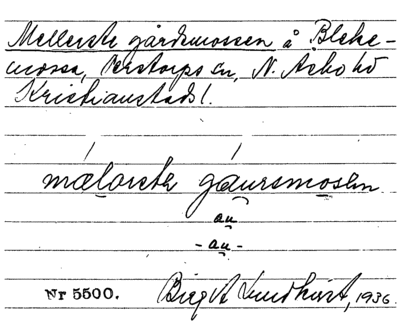 Mellersta gårdsmossen å Bleke-
mossa, Perstorps sn, N. Åsbo hd
Kristianstads l.
mælorsta gaursmosen
au
- au -
Nr 5500. Birgit Lundkvist, 1936.